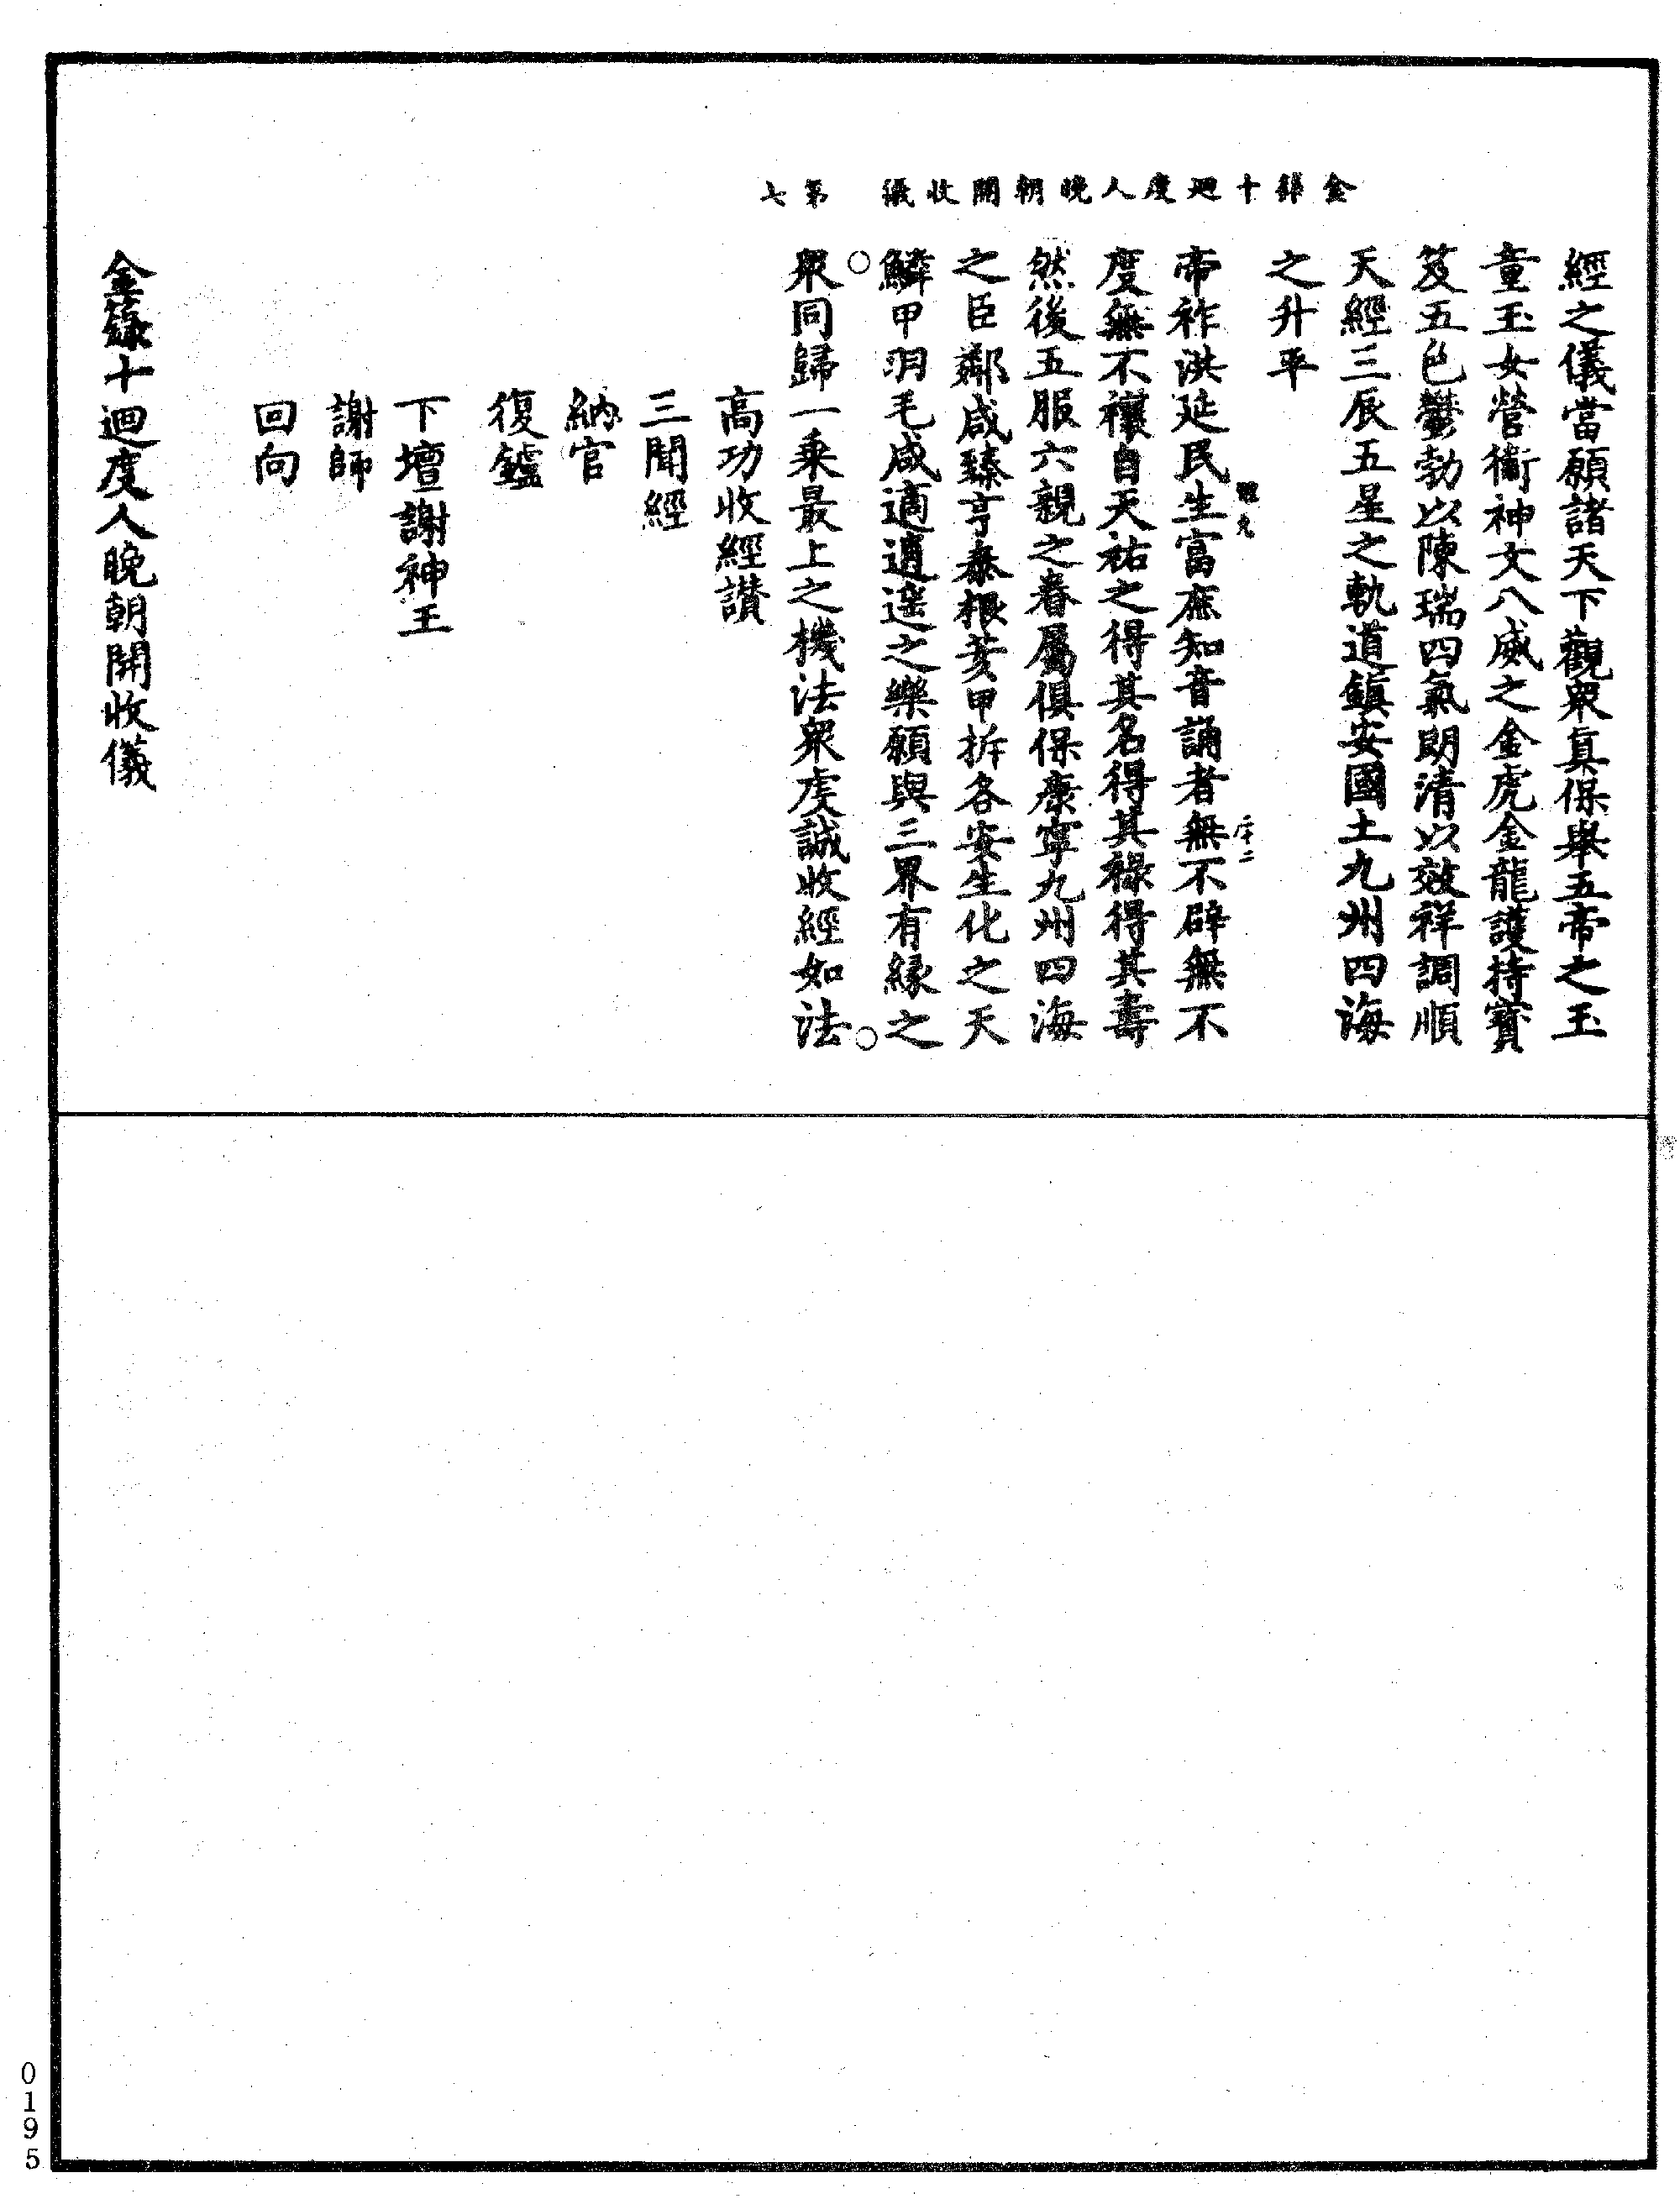 金籙十迴度人晚朝開收儀　第七
經之儀當願諸天下觀衆真保舉五帝之玉
童玉女營衛神文八威之金虎金龍護持寶
笈五色鬱勃以陳瑞四氣朗清以效祥調順
天經三辰五星之軌道鎮安國土九州四海
之升平
帝祚洪延民生富庶知音誦者無不辟無不
度無不禳自天祐之得其名得其祿得其壽
然後五服六親之眷屬俱保康寧九州四海
之臣鄰咸臻亨泰根荄甲拆各安生化之天
鱗甲羽毛咸適逍遥之樂願與三界有緣之
○衆同歸一乘最上之機法衆虔誠收經如法○
高功收經讃
三聞經
納官
復鑪
下壇謝神王
謝師
回向
金籙十迴度人晚朝開收儀
0195